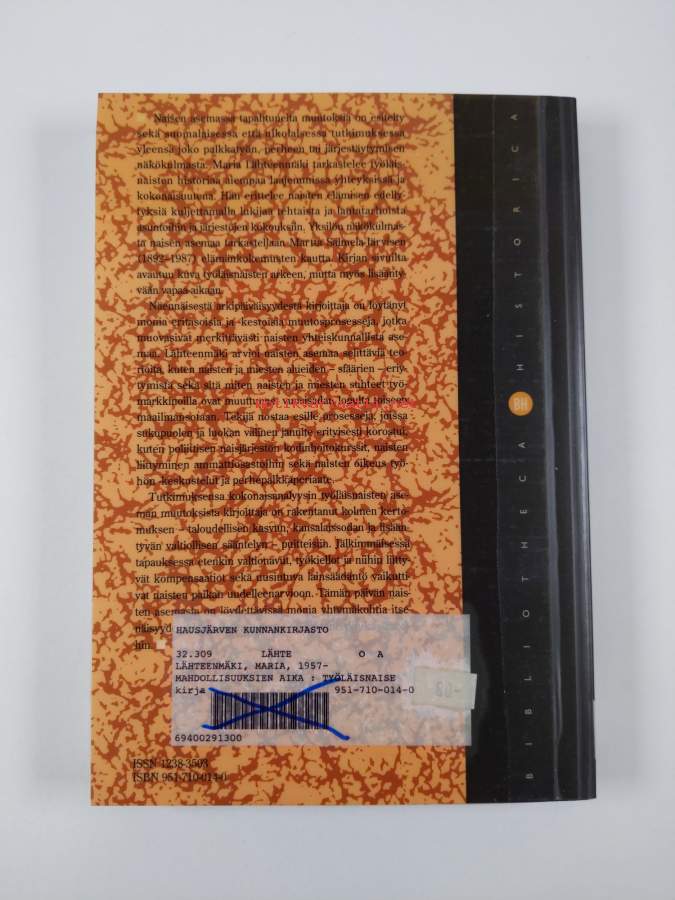 Naisen asemassa tapahtuneita muutoksia on esitelty
sekä suomalaisessa että ulkolaisessa tutkimuksessa
yleensä joko palkkatyön, perheen tai järjestäytymisen
näkökulmasta. Maria Lähteenmäki tarkastelee työläis-
naisten historiaa aiempaa laajemmissa yhteyksissä ja
kokonaisuutena. Hän erittelee naisten elämisen edelly-
tyksiä kuljettamalla lukijaa tehtaista ja lantatarhoista
asuntoihin ja järjestöjen kokouksiin. Yksilön näkökulmas-
ta naisen asemaa tarkastellaan Martta Salmela-Järvisen
(1892–1987) elämänkokemusten kautta. Kirjan sivuilta
avautuu kuva työläisnaisten arkeen, mutta myös lisäänty-
vään vapaa-aikaan.
Näennäisestä arkipäiväisyydestä kirjoittaja on löytänyt
monia eritasoisia ja -kestoisia muutosprosesseja, jotka
muovasivat merkittävästi naisten yhteiskunnallista ase-
maa. Lähteenmäki arvioi naisten asemaa selittäviä teo-
rioita, kuten naisten ja miesten alueiden – sfäärien – eriy-
tymistä sekä sitä miten naisten ja miesten suhteet työ-
markkinoilla ovat muuttuneet vuosisadan lopulta toiseen
maailmansotaan. Tekijä nostaa esille prosesseja, joissa
sukupuolen ja luokan välinen jännite erityisesti korostui,
kuten poliittisen naisjärjestön kodinhoitokurssit, naisten
liittyminen ammattiosastoihin sekä naisten oikeus työ-
hön -keskustelut ja perhepalkkaperiaate.
Tutkimuksensa kokonaisanalyysin työläisnaisten ase-
man muutoksista kirjoittaja on rakentanut kolmen kerto-
muksen – taloudellisen kasvun, kansalaissodan ja lisään-
tyvän valtiollisen sääntelyn – puitteisiin. Jälkimmäisessä
tapauksessa etenkin valtionavut, työkiellot ja niihin liitty-
vät kompensaatiot sekä uusiutuva lainsäädäntö vaikutti-
vat naisten paikan uudelleenarvioon. Tämän päivän nais-
ten asemasta on löydettävissä monia yhtymäkohtia itse-
näisyyde
hin.
HAUSJÄRVEN KUNNANKIRJASTO
32.309 LÄHTE O A
LÄHTEENMÄKI, MARIA, 1957-
MAHDOLLISUUKSIEN AIKA : TYÖLÄISNAISE
kirja 951-710-014-0
69400291300
ISSN 1238-3503
ISBN 951-710-014-0
BIBLIOTHECA BH HISTORICA